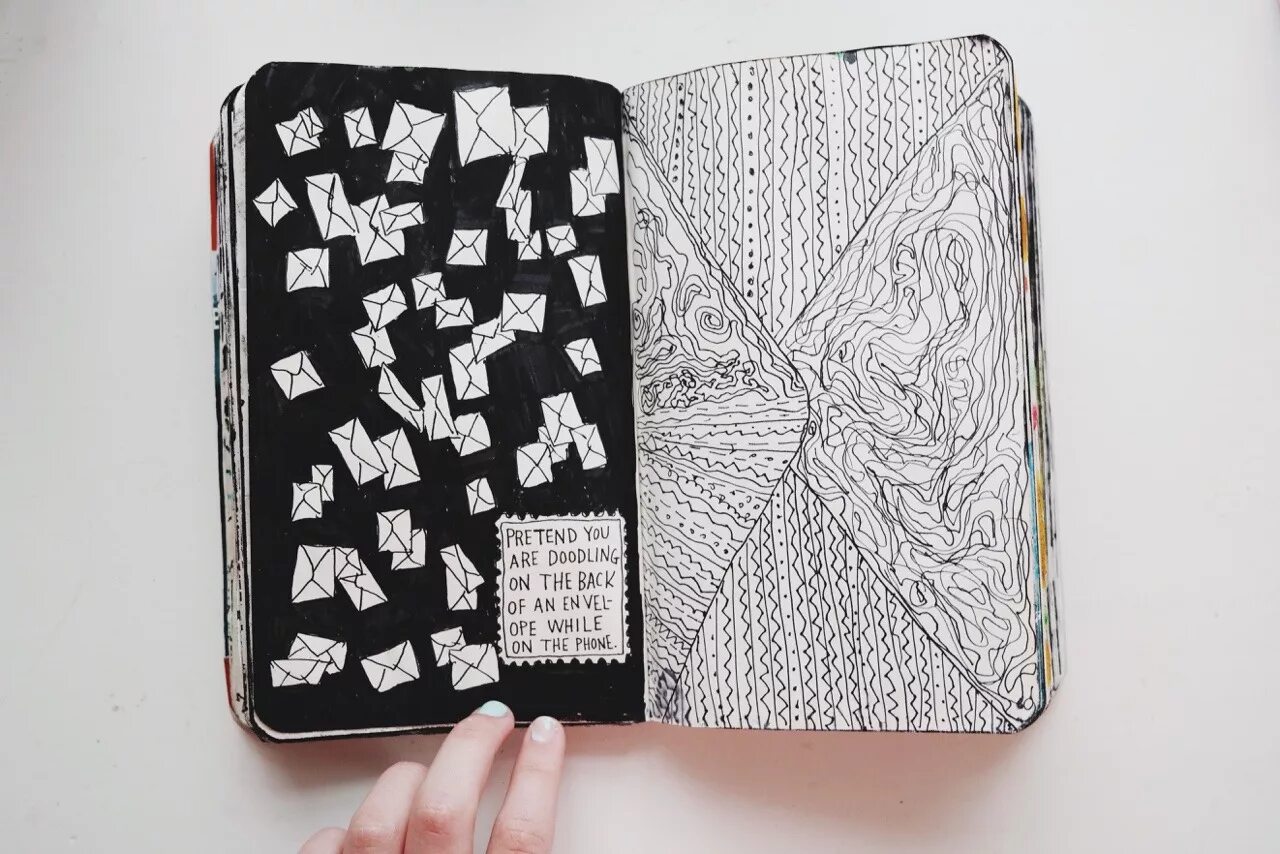 PRETEND YOU
ARE DOODLING
ON THE BACK
OF AN ENVEL-
OPE WHILE
ON THE PHONE.